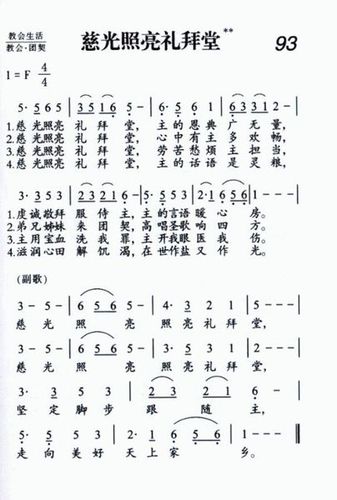 教会生活
教会·团契
慈光照亮礼拜堂**
93
1=F 4/4
5· 5 6 5 | 3 5 1 6 - | 5· 5 1 2 | 6 3 3 1 - |
1.慈光照亮 礼拜堂, 主的恩典 广无量,
2.慈光照亮 礼拜堂, 心中有主 多欢畅,
3.慈光照亮 礼拜堂, 劳苦愁烦 主担当,
4.慈光照亮 礼拜堂, 主的话语 是灵粮,
3· 5 3 5 | 2 3 2 1 6 - | 5· 5 3 5 | 2· 1 6 5 1 - |
1.虔诚敬拜 服侍主,主的言语 暖心房。
2.弟兄姊妹 来团契,高唱圣歌 响四方。
3.主用宝血 洗我罪,主开我眼 医我伤。
4.滋润心田 解饥渴,在世作盐 又作光。
(副歌)
3 - 5 - | 6 5 6 5 - | 4· 3 2 1 | 5 - - - |
慈 光 照 亮 照亮礼拜 堂,
3 - 5 - | 6 5 6 5 - | 3· 2 2 1 | 2 - - - |
慈 光 照 亮 照亮礼拜 堂,
坚 定 脚 步 跟 随 主,
走 向 美好 天上家 乡。